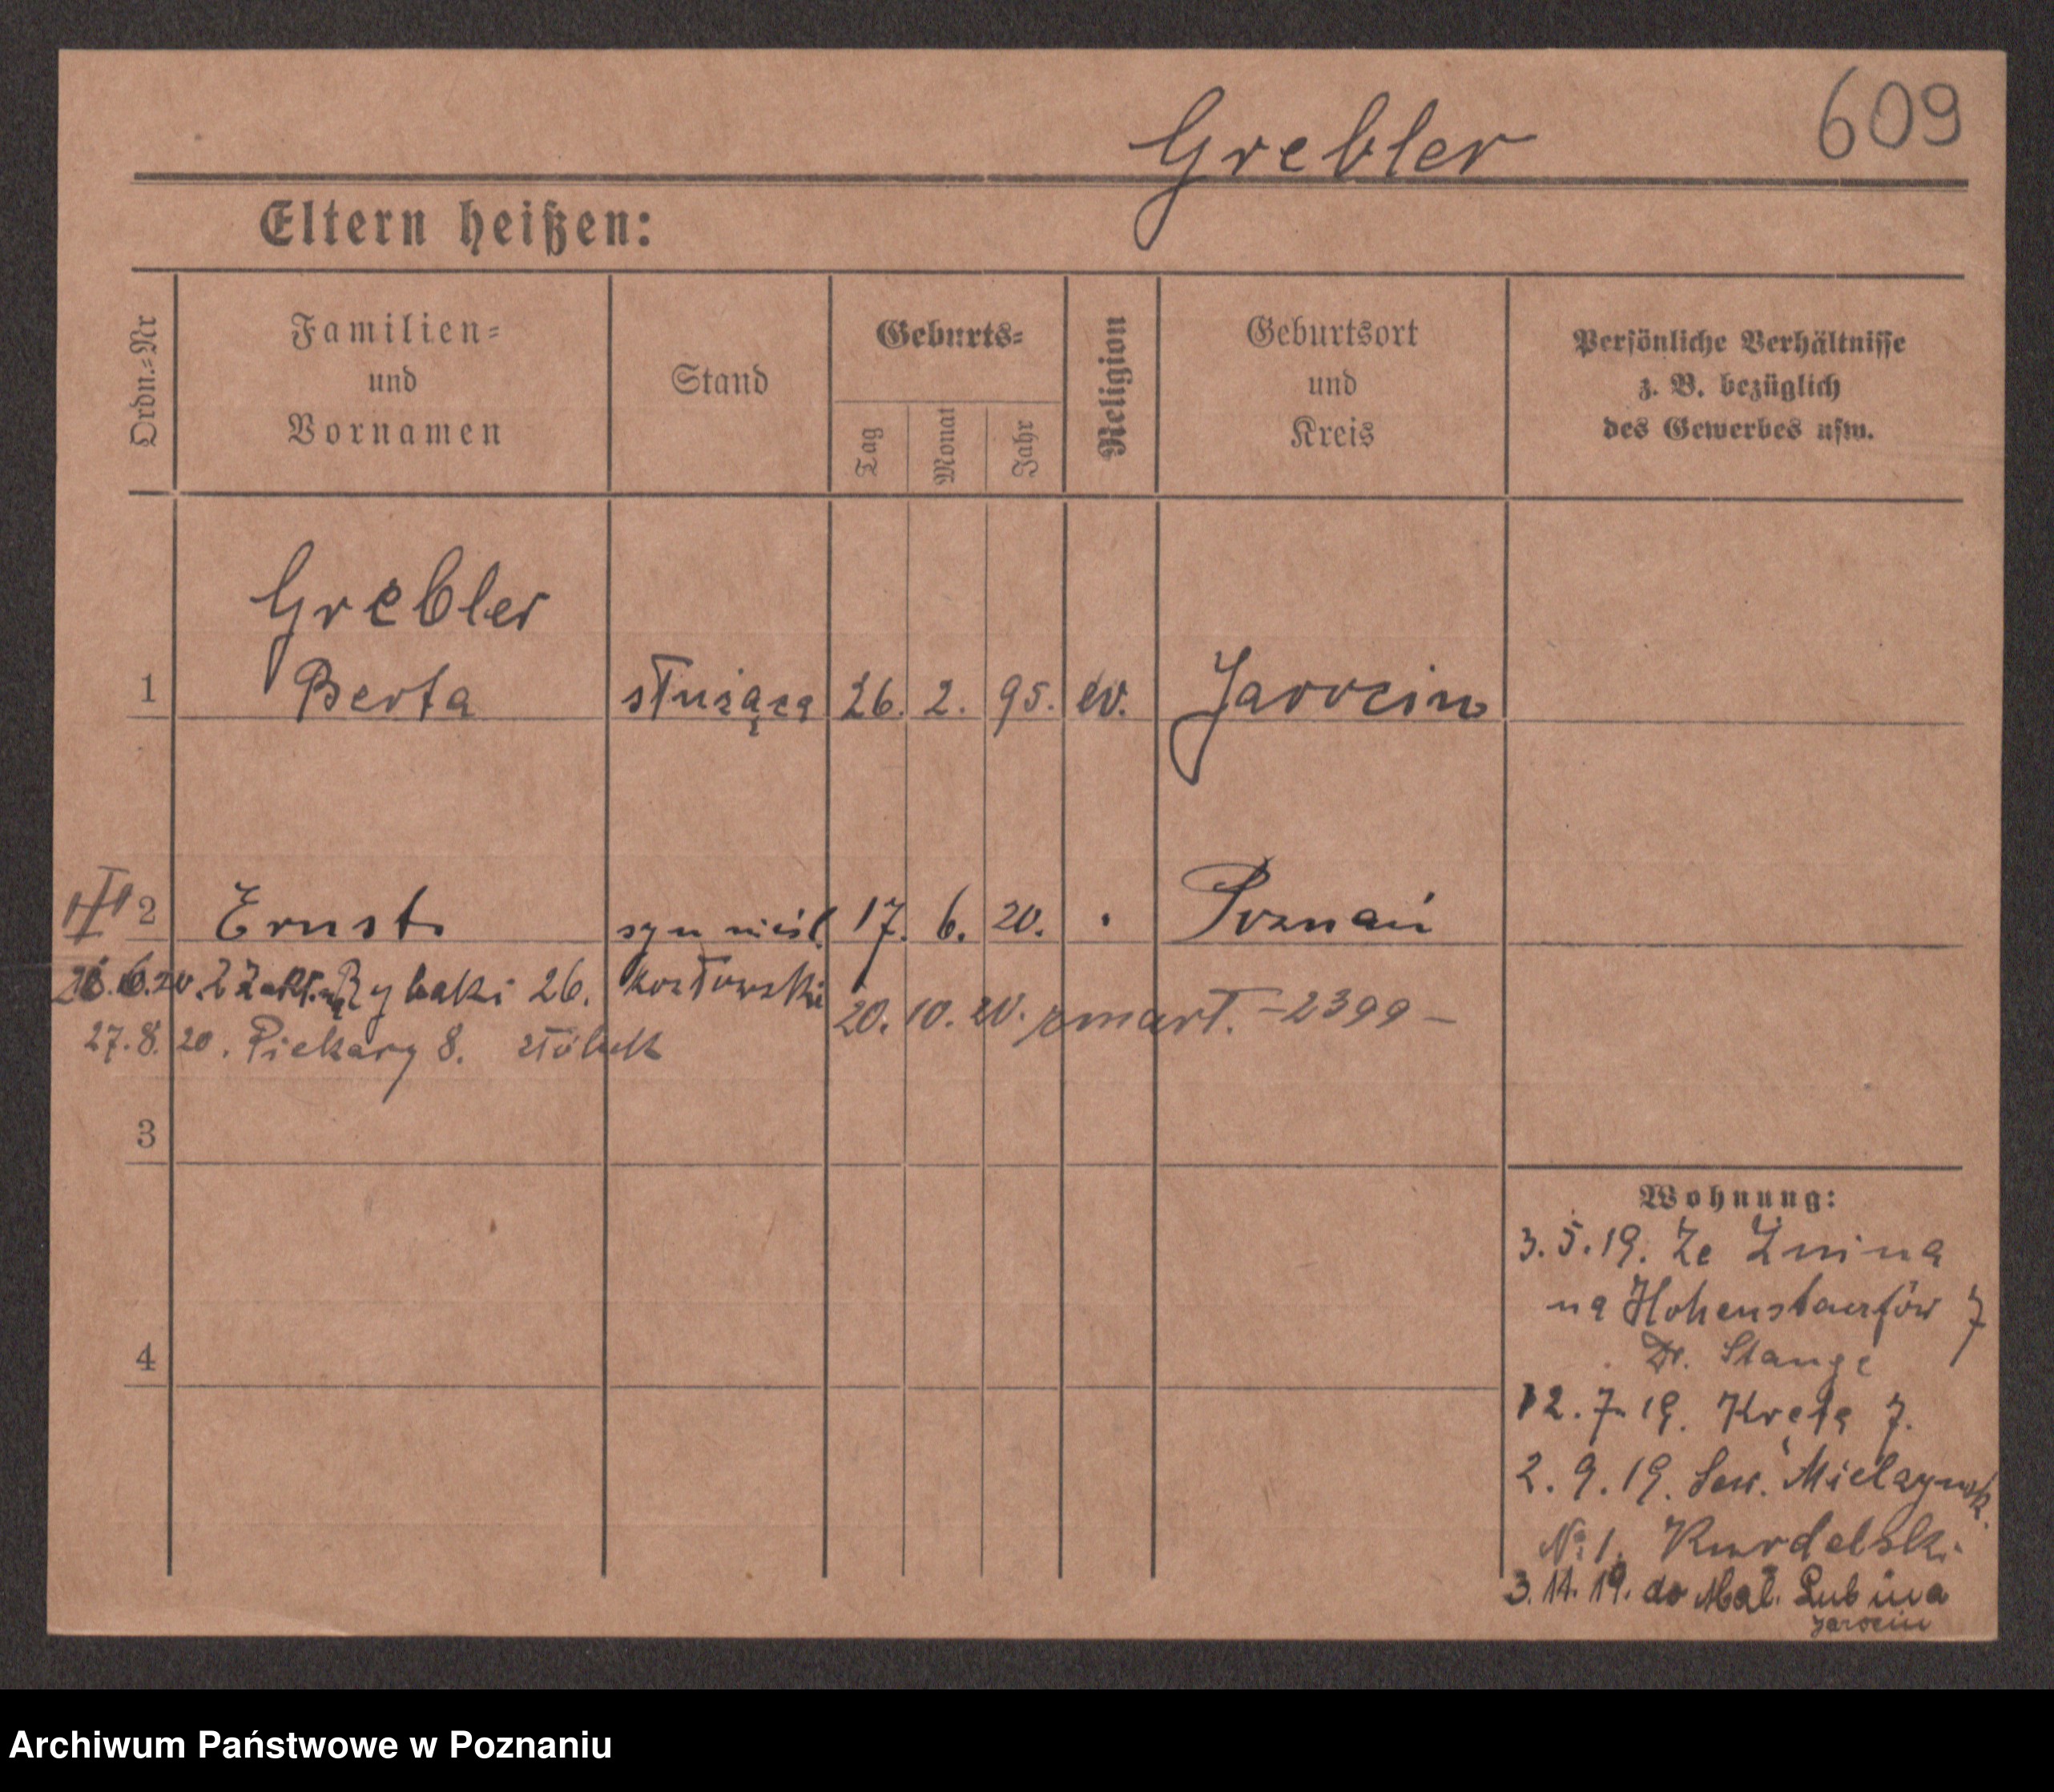 609
Grebler
Eltern heißen:
Ordn.-Nr
Familien-
und
Vornamen
Stand
Geburts-
Tag
Monat
Jahr
Religion
Geburtsort
und
Kreis
Persönliche Verhältnisse
z. B. bezüglich
des Gewerbes usw.
Grebler
1 Berta służąca 26. 2. 95. ev. Jarocin
2 Ernst syn nieśl. 17. 6. 20. Poznań
Rybaki 26. Kozłowski
20. 10. 20. zmarł. - 2399 -
27. 8. 20. Piekary 8. żłóbek
3
4
Wohnung:
3. 5. 19. Ze Żnina
na Hohenstaufów 7
Dr. Stange
12. 7. 19. Kręta 7.
2. 9. 19. Sew. Mielzynsk.
No 1. Kurdelski
3. 11. 19. do Mał. Lubinia
Jarocin
Archiwum Państwowe w Poznaniu